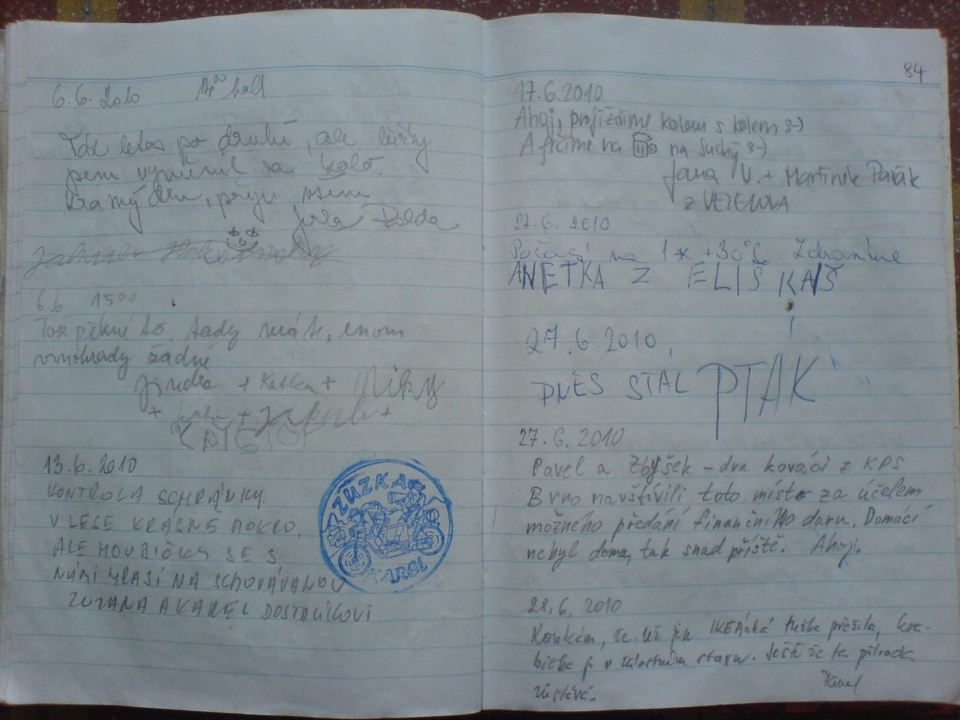 6.6. 2010
Tak letos po druhé, ale běžky
jsem vyměnil za kolo.
Krásný den, přeje všem
Jirka
6.6 15⁰⁰
Tak pěkné to tady máte, enom
vinohrady žádné
Jindra + Katka + Niky
+ + Jakub +
13.6.2010
KONTROLA SCHRÁNKY
V LESE KRÁSNĚ MOKRO,
ALE HOUBIČKY SE S
NÁMI HRAJÍ NA SCHOVÁVANOU
ZUZANA A KAREL DOSTALÍKOVI
ZUZKA
KAREL
84
17.6.2010
Ahoj, projíždíme kolem s kolem :-)
A frčíme na na Suchý :-)
Jana V. + Martínek Paták
z VEZELOVA
27.6.2010
Počasí na 1* +30°C Zdravíme
ANETKA Z ELIŠKAŠ
27.6.2010,
DNES STÁL PTÁK!
27.6.2010
Pavel a Zbyšek – dva kováci z KPS
Brno navštívili toto místo za účelem
možného předání finančního daru. Domácí
nebyl doma, tak snad příště. Ahoj.
28.6.2010
Koukám, že už jen IKEÁcká tužka přežila, kra-
bička je v žalostném stavu. Ještě že ta příroda
zůstává.
Karel